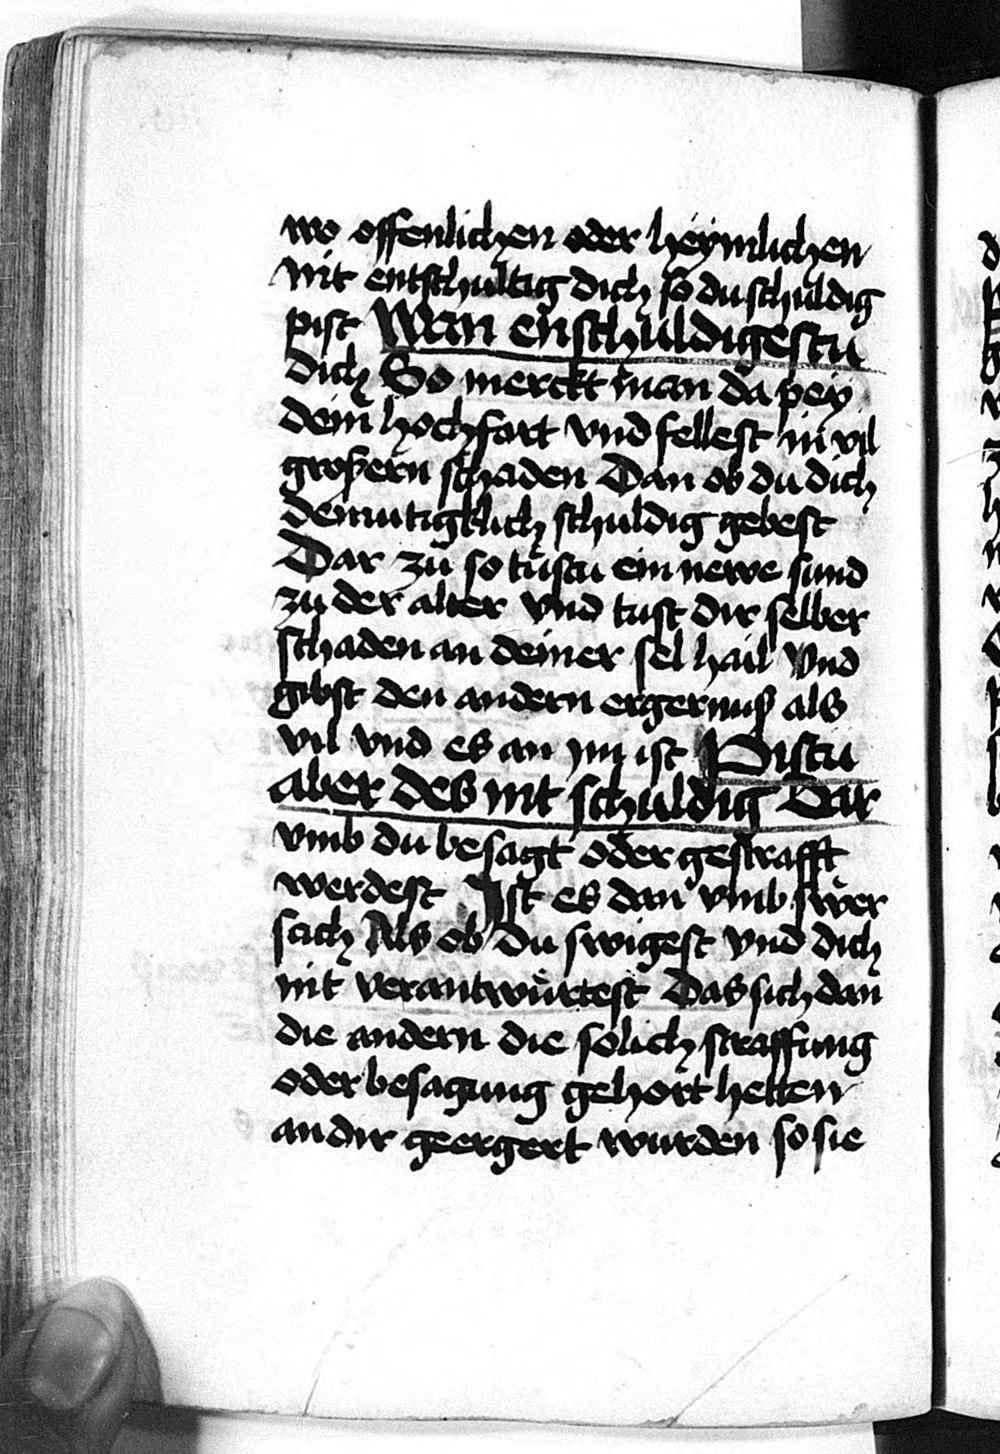 wo offenlichen oder heymlichen
Nit entschultig dich so du schuldig
pist Wan enschuldigestu
dich So merckt man da pey
dein hochfart vnd fellest in vil
großern schaden Dan ob du dich
demutigklich schuldig gebest
Dar zu so tustu ein newe sund
zu der alter vnd tust dir selber
schaden an deiner sel hail Vnd
gibst den andern ergernuß als
vil vnd es an jm ist Pistu
aber des nit schuldig Dar
vmb du besagt oder gestrafft
werdest Ist es dan vmb swer
sach Als ob du swigest vnd dich
nit verantwürtest Das sich dan
die andern die solich straffung
oder besagung gehort hetten
an dir geergert wurden so sie